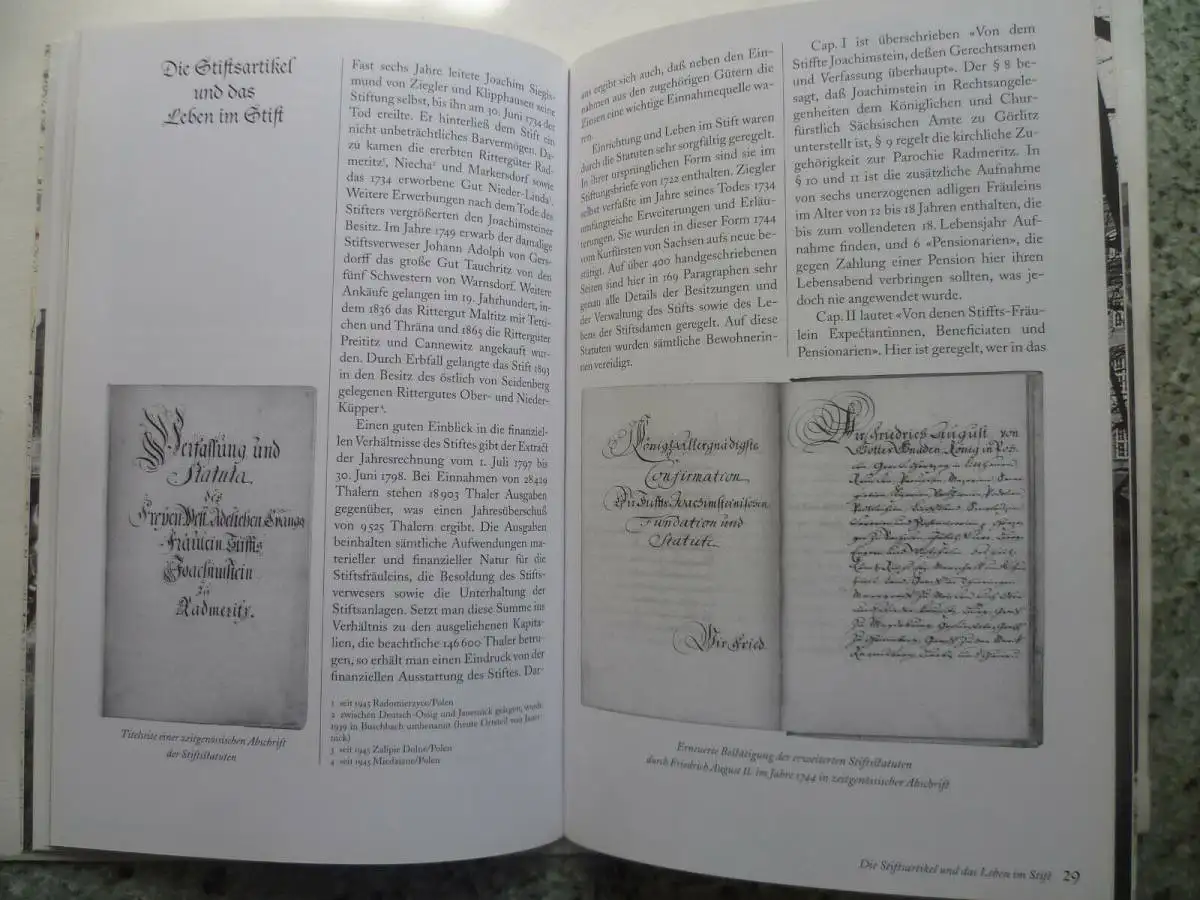 Die Stiftsartikel
und das
Leben im Stift
Fast sechs Jahre leitete Joachim Siegis-
mund von Ziegler und Klipphausen seine
Stiftung selbst, bis ihn am 30. Juni 1734 der
Tod ereilte. Er hinterließ dem Stift ein
nicht unbeträchtliches Barvermögen. Da-
zu kamen die ererbten Rittergüter Rad-
meritz¹, Niecha² und Markersdorf sowie
das 1734 erworbene Gut Nieder-Linda³.
Weitere Erwerbungen nach dem Tode des
Stifters vergrößerten den Joachimsteiner
Besitz. Im Jahre 1749 erwarb der damalige
Stiftsverweser Johann Adolph von Gers-
dorff das große Gut Tauchritz von den
fünf Schwestern von Warnsdorf. Weitere
Ankäufe gelangen im 19. Jahrhundert, in-
dem 1836 das Rittergut Maltitz mit Tetti-
chen und Thräna und 1865 die Rittergüter
Preititz und Cannewitz angekauft wur-
den. Durch Erbfall gelangte das Stift 1893
in den Besitz des östlich von Seidenberg
gelegenen Rittergutes Ober- und Nieder-
Küpper⁴.
Einen guten Einblick in die finanziel-
len Verhältnisse des Stiftes gibt der Extract
der Jahresrechnung vom 1. Juli 1797 bis
30. Juni 1798. Bei Einnahmen von 28419
Thalern stehen 18903 Thaler Ausgaben
gegenüber, was einen Jahresüberschuß
von 9525 Thalern ergibt. Die Ausgaben
beinhalten sämtliche Aufwendungen ma-
terieller und finanzieller Natur für die
Stiftsfräuleins, die Besoldung des Stifts-
verwesers sowie die Unterhaltung der
Stiftsanlagen. Setzt man diese Summe ins
Verhältnis zu den ausgeliehenen Kapita-
lien, die beachtliche 146600 Thaler betru-
gen, so erhält man einen Eindruck von der
finanziellen Ausstattung des Stiftes. Dar-
1 seit 1945 Radomierzyce/Polen
2 zwischen Deutsch-Ossig und Jauernick gelegen, wurde
1939 in Buschbach umbenannt (heute Ortsteil von Jauer-
nick)
3 seit 1945 Zalipie Dolne/Polen
4 seit 1945 Miedziane/Polen
Verfassung und
Statuta
des
Freyen Welt Adelichen Evang.
Fräulein Stiffts
Joachimstein
zu
Radmeritz.
Titelseite einer zeitgenössischen Abschrift
der Stiftsstatuten
aus ergibt sich auch, daß neben den Ein-
nahmen aus den zugehörigen Gütern die
Zinsen eine wichtige Einnahmequelle wa-
ren.
Einrichtung und Leben im Stift waren
durch die Statuten sehr sorgfältig geregelt.
In ihrer ursprünglichen Form sind sie im
Stiftungsbriefe von 1722 enthalten. Ziegler
selbst verfaßte im Jahre seines Todes 1734
umfangreiche Erweiterungen und Erläu-
terungen. Sie wurden in dieser Form 1744
vom Kurfürsten von Sachsen aufs neue be-
stätigt. Auf über 400 handgeschriebenen
Seiten sind hier in 169 Paragraphen sehr
genau alle Details der Besitzungen und
der Verwaltung des Stifts sowie des Le-
bens der Stiftsdamen geregelt. Auf diese
Statuten wurden sämtliche Bewohnerin-
nen vereidigt.
Cap. I ist überschrieben «Von dem
Stiffte Joachimstein, deßen Gerechtsamen
und Verfassung überhaupt». Der § 8 be-
sagt, daß Joachimstein in Rechtsangele-
genheiten dem Königlichen und Chur-
fürstlich Sächsischen Amte zu Görlitz
unterstellt ist, § 9 regelt die kirchliche Zu-
gehörigkeit zur Parochie Radmeritz. In
§ 10 und 11 ist die zusätzliche Aufnahme
von sechs unerzogenen adligen Fräuleins
im Alter von 12 bis 18 Jahren enthalten, die
bis zum vollendeten 18. Lebensjahr Auf-
nahme finden, und 6 «Pensionarien», die
gegen Zahlung einer Pension hier ihren
Lebensabend verbringen sollten, was je-
doch nie angewendet wurde.
Cap. II lautet «Von denen Stiffts-Fräu-
lein Expectantinnen, Beneficiaten und
Pensionarien». Hier ist geregelt, wer in das
Königl. allergnädigste
Confirmation
Fundation und
Statuta
Wir Fried.
Wir Friedrich August von
Gottes Gnaden König in Poh-
Erneuerte Bestätigung des erweiterten Stiftsstatuten
durch Friedrich August II. im Jahre 1744 in zeitgenössischer Abschrift
Die Stiftsartikel und das Leben im Stift 29